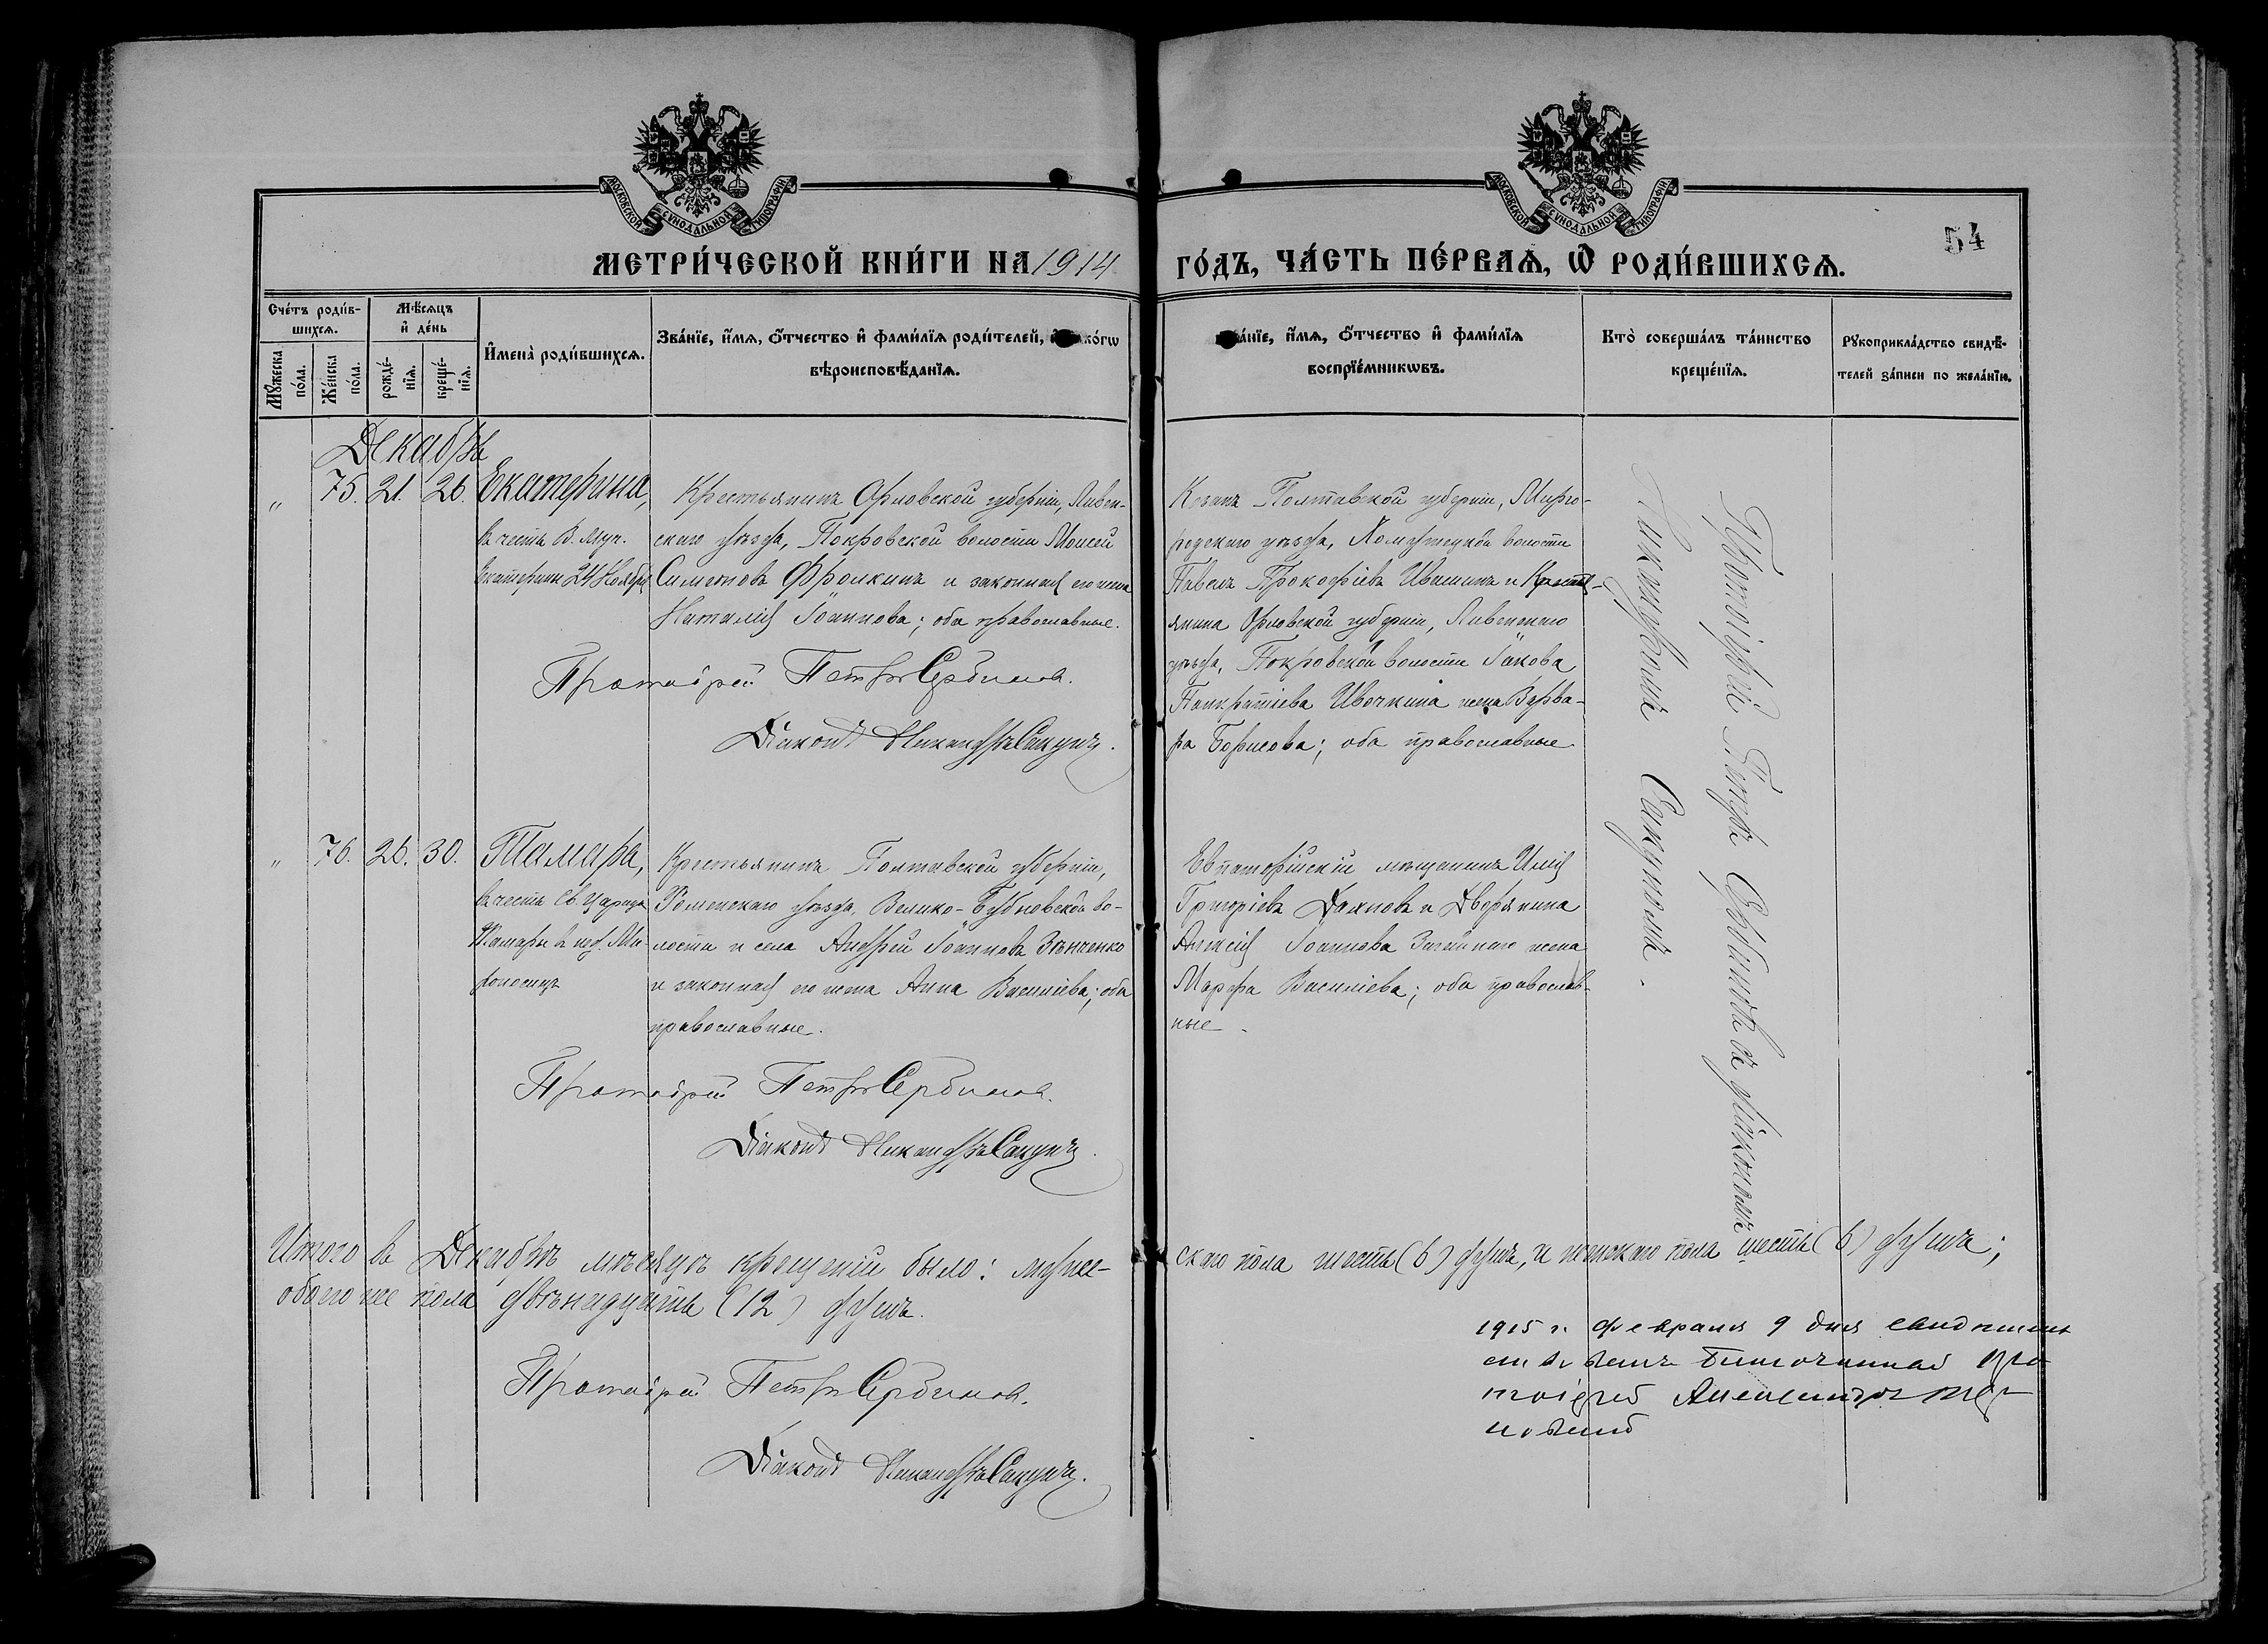 МОСКОВСКОЙ СѴНОДАЛЬНОЙ ТИПОГРАФІИ
МОСКОВСКОЙ СѴНОДАЛЬНОЙ ТИПОГРАФІИ
54
МЕТРИ́ЧЕСКОЙ КНИ́ГИ НА 1914 ГО́ДЪ, ЧА́СТЬ ПЕ́РВАѦ, Ѡ РОДИ́ВШИХСѦ.
Сче́тъ роди́в-
шихсѧ.
Мꙋ́жеска по́ла.
Же́нска по́ла.
Мѣ́сѧцъ
и҆ де́нь
рожде́-
нїѧ.
креще́-
нїѧ.
И҆мена̀ роди́вшихсѧ.
Зва́нїе, и҆́мѧ, ѻ҆́тчество и҆ фами́лїѧ роди́телей, и҆ како́гѡ
вѣроисповѣ́данїѧ.
Зва́нїе, и҆́мѧ, ѻ҆́тчество и҆ фами́лїѧ
воспрїе́мникѡвъ.
Кто̀ соверша́лъ та́инство
креще́нїѧ.
Рꙋкоприкла́дство свидѣ́-
телей за́писи по жела́нїю.
Декабрь
" 75. 21. 26. Екатерина,
въ честь В. Муч.
Екатерины 24 Ноября
Крестьянинъ Орловской губерніи, Ливен-
скаго уѣзда, Покровской волости Моисей
Симеоновъ Фролкинъ и законная его жена
Наталія Іоаннова; оба православные.
Протоіерей Петръ Сербиновъ.
Діаконъ Никандръ Сакунъ.
Козакъ Полтавской губерніи, Мирго-
родскаго уѣзда, волости
Павелъ Прокофіевъ Ивашинъ и Кресть-
янина Орловской губерніи, Ливенскаго
уѣзда, Покровской волости Іакова
Панкратіева Ивочкина жена Варва-
ра Борисова; оба православные
Протоіерей Петръ Сербиновъ съ діакономъ
Никандромъ Сакуномъ.
" 76. 26. 30. Тамара,
въ честь Св. Царицы
Тамары въ нед. Ми-
роносицъ
Крестьянинъ Полтавской губерніи,
Роменскаго уѣзда, Велико-Бубновской во-
лости и села Андрей Іоанновъ Зѣнченко
и законная его жена Анна Василіева; оба
православные.
Протоіерей Петръ Сербиновъ.
Діаконъ Никандръ Сакунъ.
Евпаторійскій мѣщанинъ Илія
Григоріевъ Дахновъ и Дворянина
Алексія Іоаннова жена
Марфа Василіева; оба православ-
ные.
Итого въ Декабрѣ мѣсяцѣ крещеній было: муже-
скаго пола шесть (6) душъ, и женскаго пола шесть (6) душъ;
обоего же пола двѣнадцать (12) душъ.
Протоіерей Петръ Сербиновъ.
Діаконъ Никандръ Сакунъ.
1915 г. февраля 9 дня свидѣтель-
ствовалъ Благочинный Про-
тоіерей Александръ Тер-
новскій